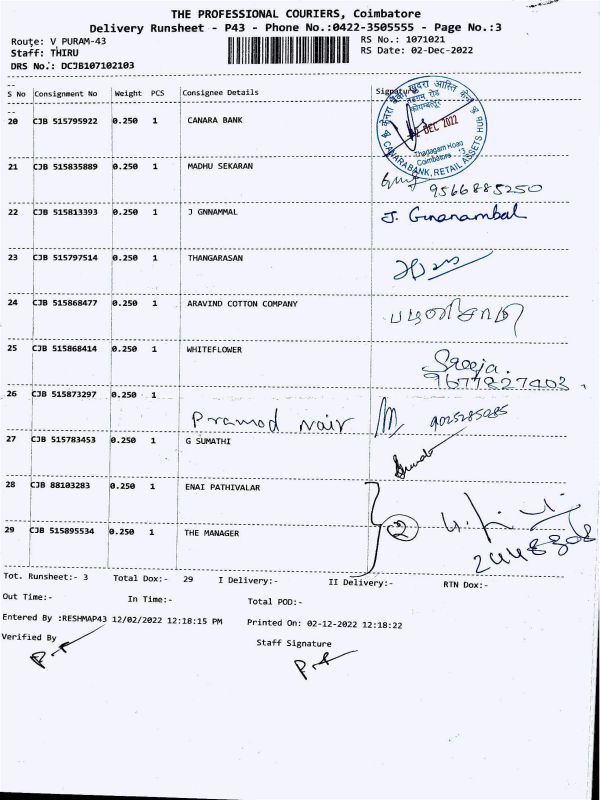 THE PROFESSIONAL COURIERS, Coimbatore
Delivery Runsheet - P43 - Phone No.:0422-3505555 - Page No.:3
Route: V PURAM-43 RS No.: 1071021
Staff: THIRU RS Date: 02-Dec-2022
DRS No.: DCJB107102103
S No Consignment No Weight PCS Consignee Details Signature
20 CJB 515795922 0.250 1 CANARA BANK
DEC 2022
Thadagam Road
Coimbatore
CANARA BANK, RETAIL ASSETS HUB
21 CJB 515835889 0.250 1 MADHU SEKARAN
9566885250
22 CJB 515813393 0.250 1 J GNNAMMAL J. Gnanambal
23 CJB 515797514 0.250 1 THANGARASAN
24 CJB 515868477 0.250 1 ARAVIND COTTON COMPANY
25 CJB 515868414 0.250 1 WHITEFLOWER Sreeja.
9677227403.
26 CJB 515873297 0.250 1 Pramod Nair 9025285085
27 CJB 515783453 0.250 1 G SUMATHI
28 CJB 88103283 0.250 1 ENAI PATHIVALAR
2
29 CJB 515895534 0.250 1 THE MANAGER
Tot. Runsheet:- 3 Total Dox:- 29 I Delivery:- II Delivery:- RTN Dox:-
Out Time:- In Time:- Total POD:-
Entered By :RESHMAP43 12/02/2022 12:18:15 PM Printed On: 02-12-2022 12:18:22
Verified By Staff Signature